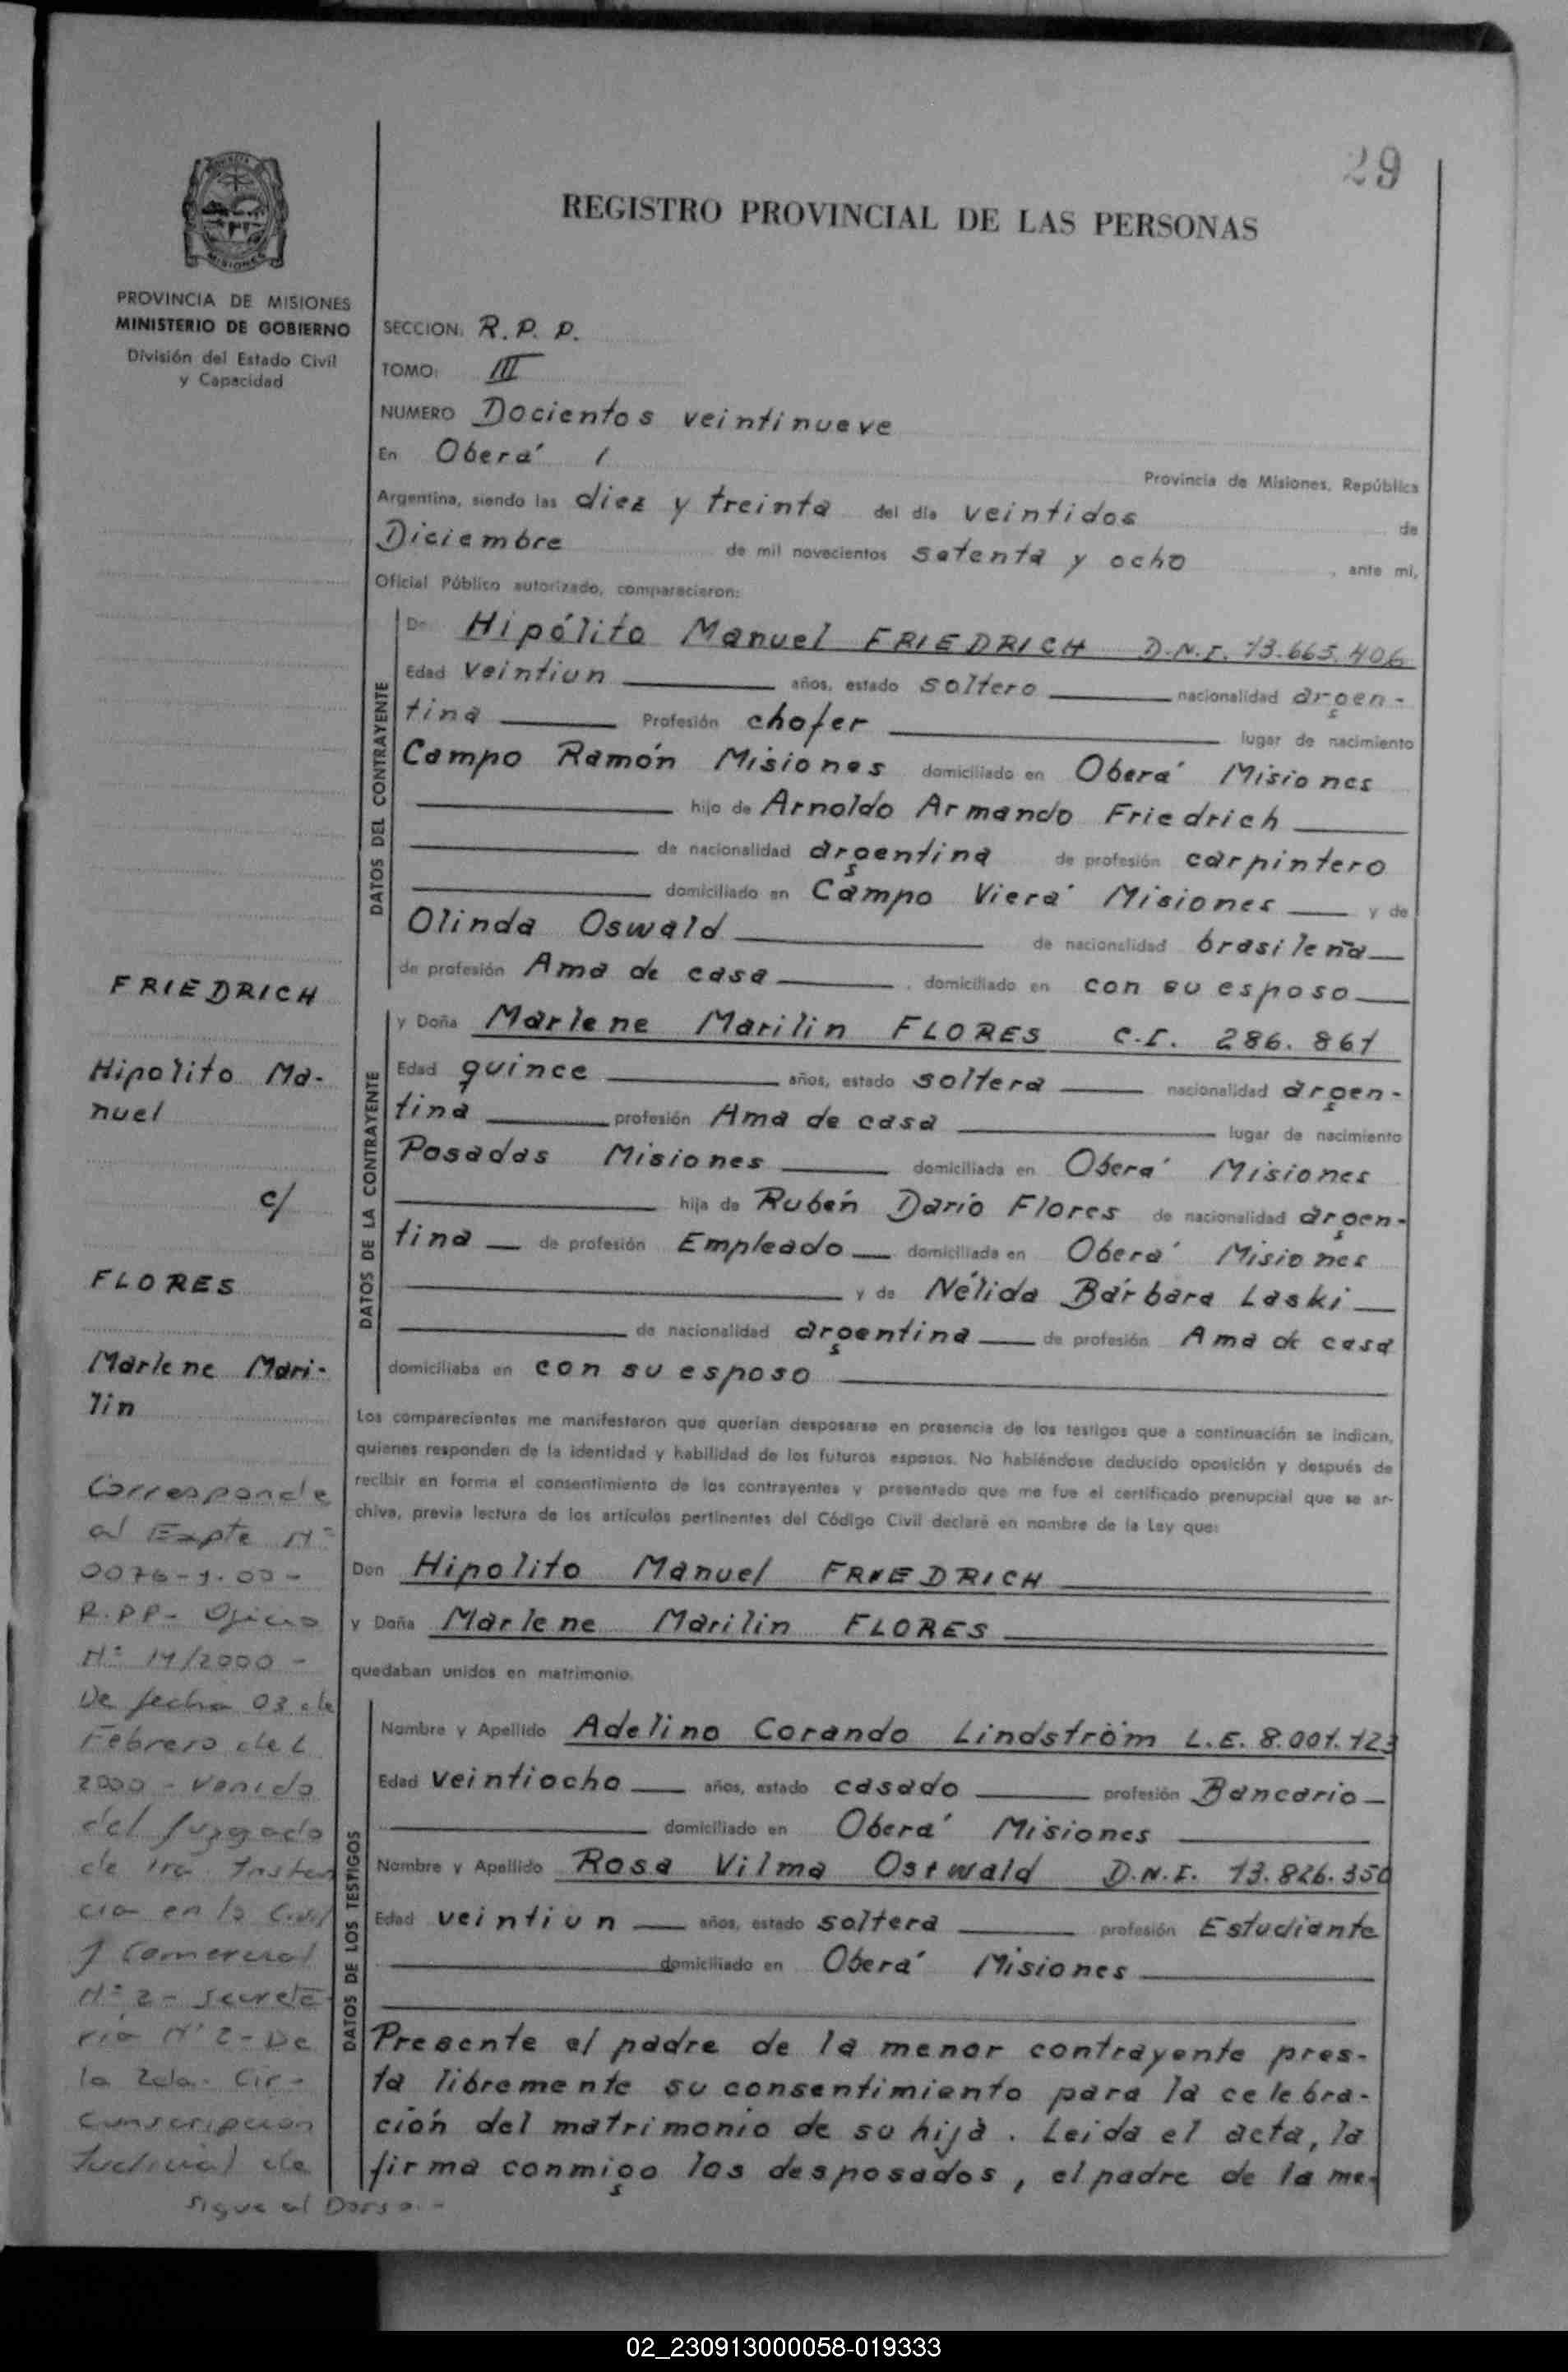 29
REGISTRO PROVINCIAL DE LAS PERSONAS
MISIONES
PROVINCIA DE MISIONES
MINISTERIO DE GOBIERNO
División del Estado Civil
y Capacidad
SECCION: R. P. P.
TOMO: III
NUMERO Docientos veintinueve
En Oberá 1
Provincia de Misiones, República
Argentina, siendo las diez y treinta del día veintidos de
Diciembre de mil novecientos setenta y ocho, ante mi,
Oficial Público autorizado, comparecieron:
DATOS DEL CONTRAYENTE
Dn Hipólito Manuel FRIEDRICH D.N.I. 13.665.406
Edad veintiun años, estado soltero nacionalidad argen-
tina Profesión chofer lugar de nacimiento
Campo Ramón Misiones domiciliado en Oberá Misiones
hijo de Arnoldo Armando Friedrich
de nacionalidad argentina de profesión carpintero
domiciliado en Campo Vierá Misiones y de
Olinda Oswald de nacionalidad brasileña
de profesión Ama de casa, domiciliado en con su esposo
DATOS DE LA CONTRAYENTE
y Doña Marlene Marilin FLORES C.I. 286.861
Edad quince años, estado soltera nacionalidad argen-
tina profesión Ama de casa lugar de nacimiento
Posadas Misiones domiciliada en Oberá Misiones
hija de Rubén Darío Flores de nacionalidad argen-
tina de profesión Empleado domiciliada en Oberá Misiones
y de Nélida Bárbara Laski
de nacionalidad argentina de profesión Ama de casa
domiciliaba en con su esposo
Los comparecientes me manifestaron que querían desposarse en presencia de los testigos que a continuación se indican,
quienes responden de la identidad y habilidad de los futuros esposos. No habiéndose deducido oposición y después de
recibir en forma el consentimiento de los contrayentes y presentado que me fue el certificado prenupcial que se ar-
chiva, previa lectura de los artículos pertinentes del Código Civil declaré en nombre de la Ley que:
Don Hipolito Manuel FRIEDRICH
y Doña Marlene Marilin FLORES
quedaban unidos en matrimonio.
DATOS DE LOS TESTIGOS
Nombre y Apellido Adelino Corando Lindström L.E. 8.001.123
Edad veintiocho años, estado casado profesión Bancario
domiciliado en Oberá Misiones
Nombre y Apellido Rosa Vilma Ostwald D.N.I. 13.826.350
Edad veintiun años, estado soltera profesión Estudiante
domiciliado en Oberá Misiones
Presente el padre de la menor contrayente pres-
ta libremente su consentimiento para la celebra-
ción del matrimonio de su hija. Leida el acta, la
firma conmigo los desposados, el padre de la me-
FRIEDRICH
Hipolito Ma-
nuel
c/
FLORES
Marlene Mari-
lin
Corresponde
al Expte Nº
R.PP- Oficio
Nº 14/2000 -
De fecha 03 de
Febrero del
2000 - Venido
del Juzgado
de 1ra. Instan
cia en lo Civil
y Comercial
Nº 2 - Secreta
ria Nº 2 - De
la 2da. Cir-
cunscripcion
Judicial de
sigue al Dorso.-
02_230913000058-019333